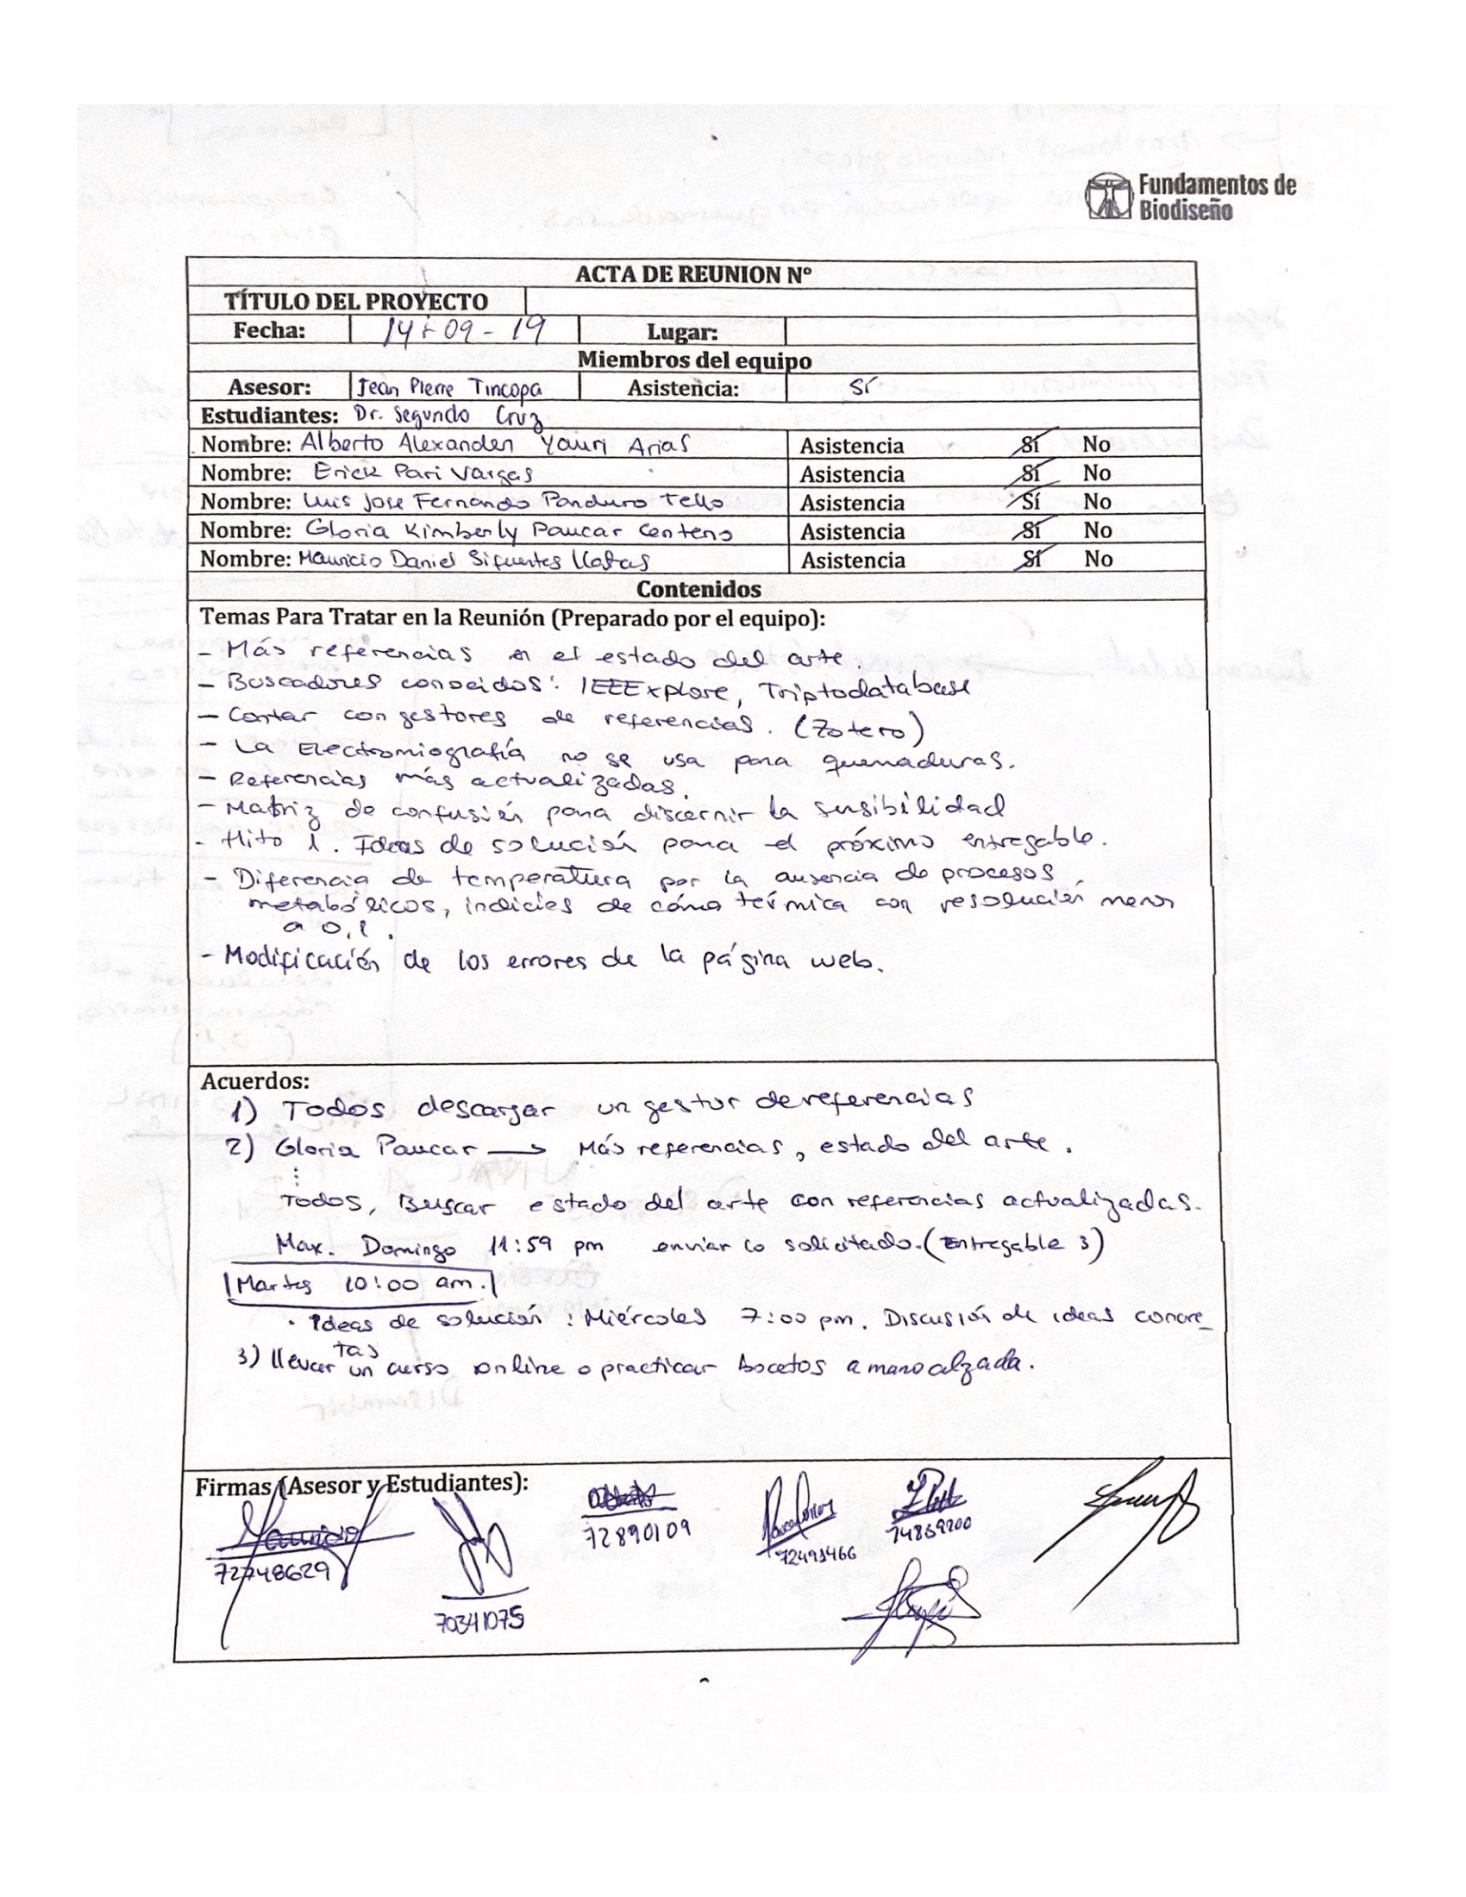 Fundamentos de
Biodiseño
ACTA DE REUNION Nº
TÍTULO DEL PROYECTO
Fecha: 14-09-19 Lugar:
Miembros del equipo
Asesor: Jean Pierre Tincopa Asistencia: Sí
Estudiantes: Dr. Segundo Cruz
Nombre: Alberto Alexander Yauri Arias Asistencia Sí No
Nombre: Erick Pari Vargas Asistencia Sí No
Nombre: Luis Jose Fernando Panduro Tello Asistencia Sí No
Nombre: Gloria Kimberly Paucar Centeno Asistencia Sí No
Nombre: Mauricio Daniel Sifuentes Asistencia Sí No
Contenidos
Temas Para Tratar en la Reunión (Preparado por el equipo):
- Más referencias en el estado del arte.
- Buscadores conocidos: IEEExplore, Triptodatabase
- Contar con gestores de referencias. (Zotero)
- La Electromiografía no se usa para quemaduras.
- Referencias más actualizadas.
- Matriz de confusión para discernir la sensibilidad
- Hito 1. Ideas de solución para el próximo entregable.
- Diferencia de temperatura por la ausencia de procesos
metabólicos, indicies de cáma térmica con resolución menor
a 0,1.
- Modificación de los errores de la página web.
Acuerdos:
1) Todos descargar un gestor de referencias
2) Gloria Paucar → Más referencias, estado del arte.
⋮
Todos, Buscar estado del arte con referencias actualizadas.
Max. Domingo 11:59 pm enviar lo solicitado. (Entregable 3)
Martes 10:00 am.
• Ideas de solución: Miércoles 7:00 pm. Discusión de ideas concre_
tas
3) llevar un curso online o practicar bocetos a mano alzada.
Firmas (Asesor y Estudiantes):
72748629
70341075
72890109
72491466
74869200